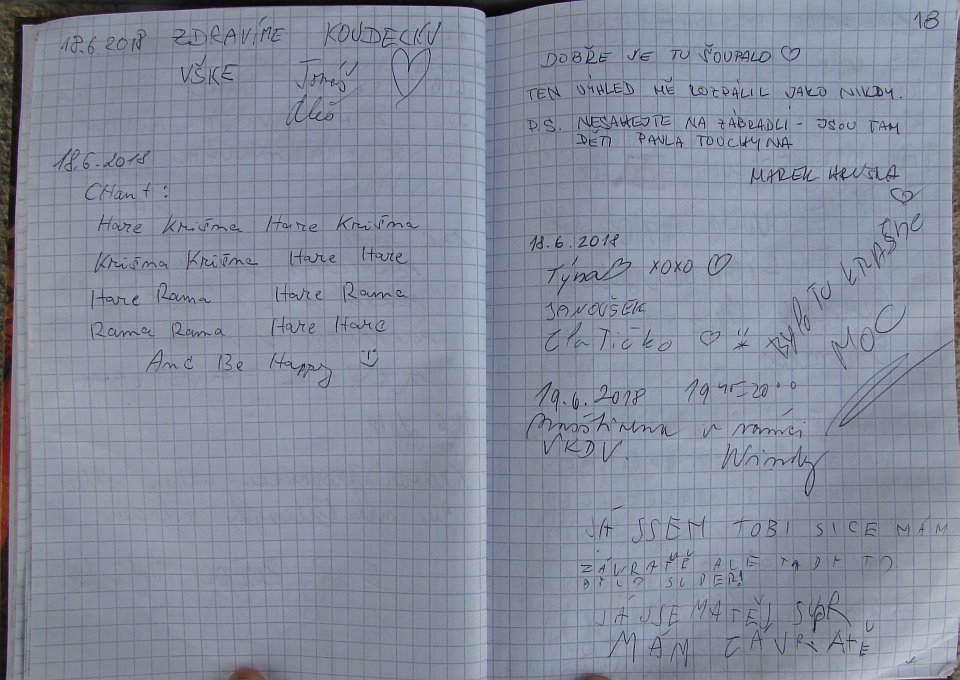 18.6.2018 ZDRAVÍME KOUDECKU
VŠKE Tomáš
Aleš
18.6.2018
CHant:
Hare Krišma Hare Krišma
Krišma Krišma Hare Hare
Hare Rama Hare Rama
Rama Rama Hare Hare
And Be Happy
18
DOBŘE SE TU ŠOUPALO ♡
TEN VÝHLED MĚ ROZPÁLIL JAKO NIKDY.
P.S. NESAHEJTE NA ZÁBRADLÍ - JSOU TAM
DĚTI PAVLA TOUCHYNA
MAREK
18.6.2018
Týna ♡ xoxo ♡
JANOUŠEK
ZlaTíčko ♡
bylo TU KRÁSNE
MOC
19.6.2018 19 45-20 00
v rámci
VKDV. Windy
JÁ JSEM TOBI SICE MÁM
ZÁVRATĚ ALE TADY TO
BYLO SUPER!
JÁ JSE MATĚJ SUPR
MÁM ZÁVRATĚ